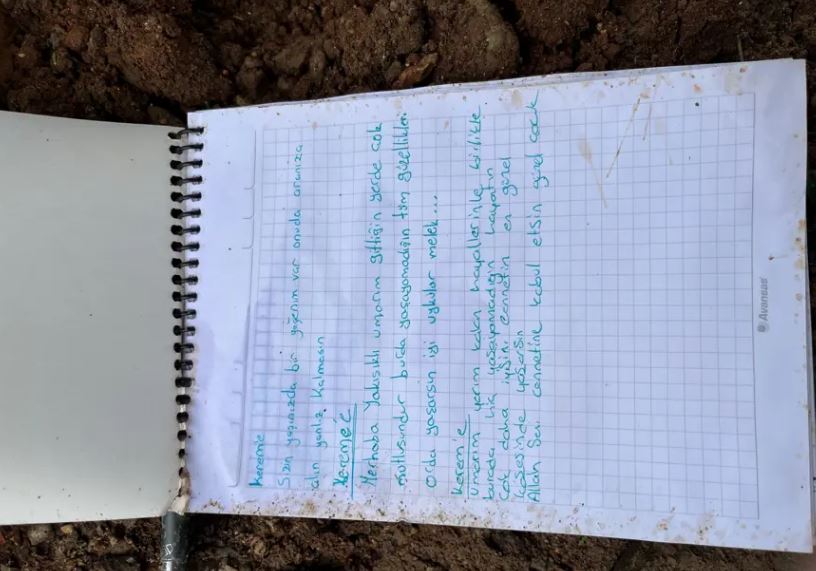 Kerem'e
Sizin yaşınızda bir yeğenim var onuda aranıza
alın yanlız kalmasın
Kereme
Merhaba Yakışıklı umarım gittiğin yerde çok
mutlusundur burda yaşayamadığın tüm güzellikleri
Orda yaşarsın iyi uykular melek...
Kerem'e
umarım yarım kalan hayallerinle birlikte
burada hiç yaşayamadığın hayatın
çok daha iyisini, cennetin en güzel
köşesinde yaşarsın
Allah Seni cennetine kabul etsin güzel çocuk
Avansas